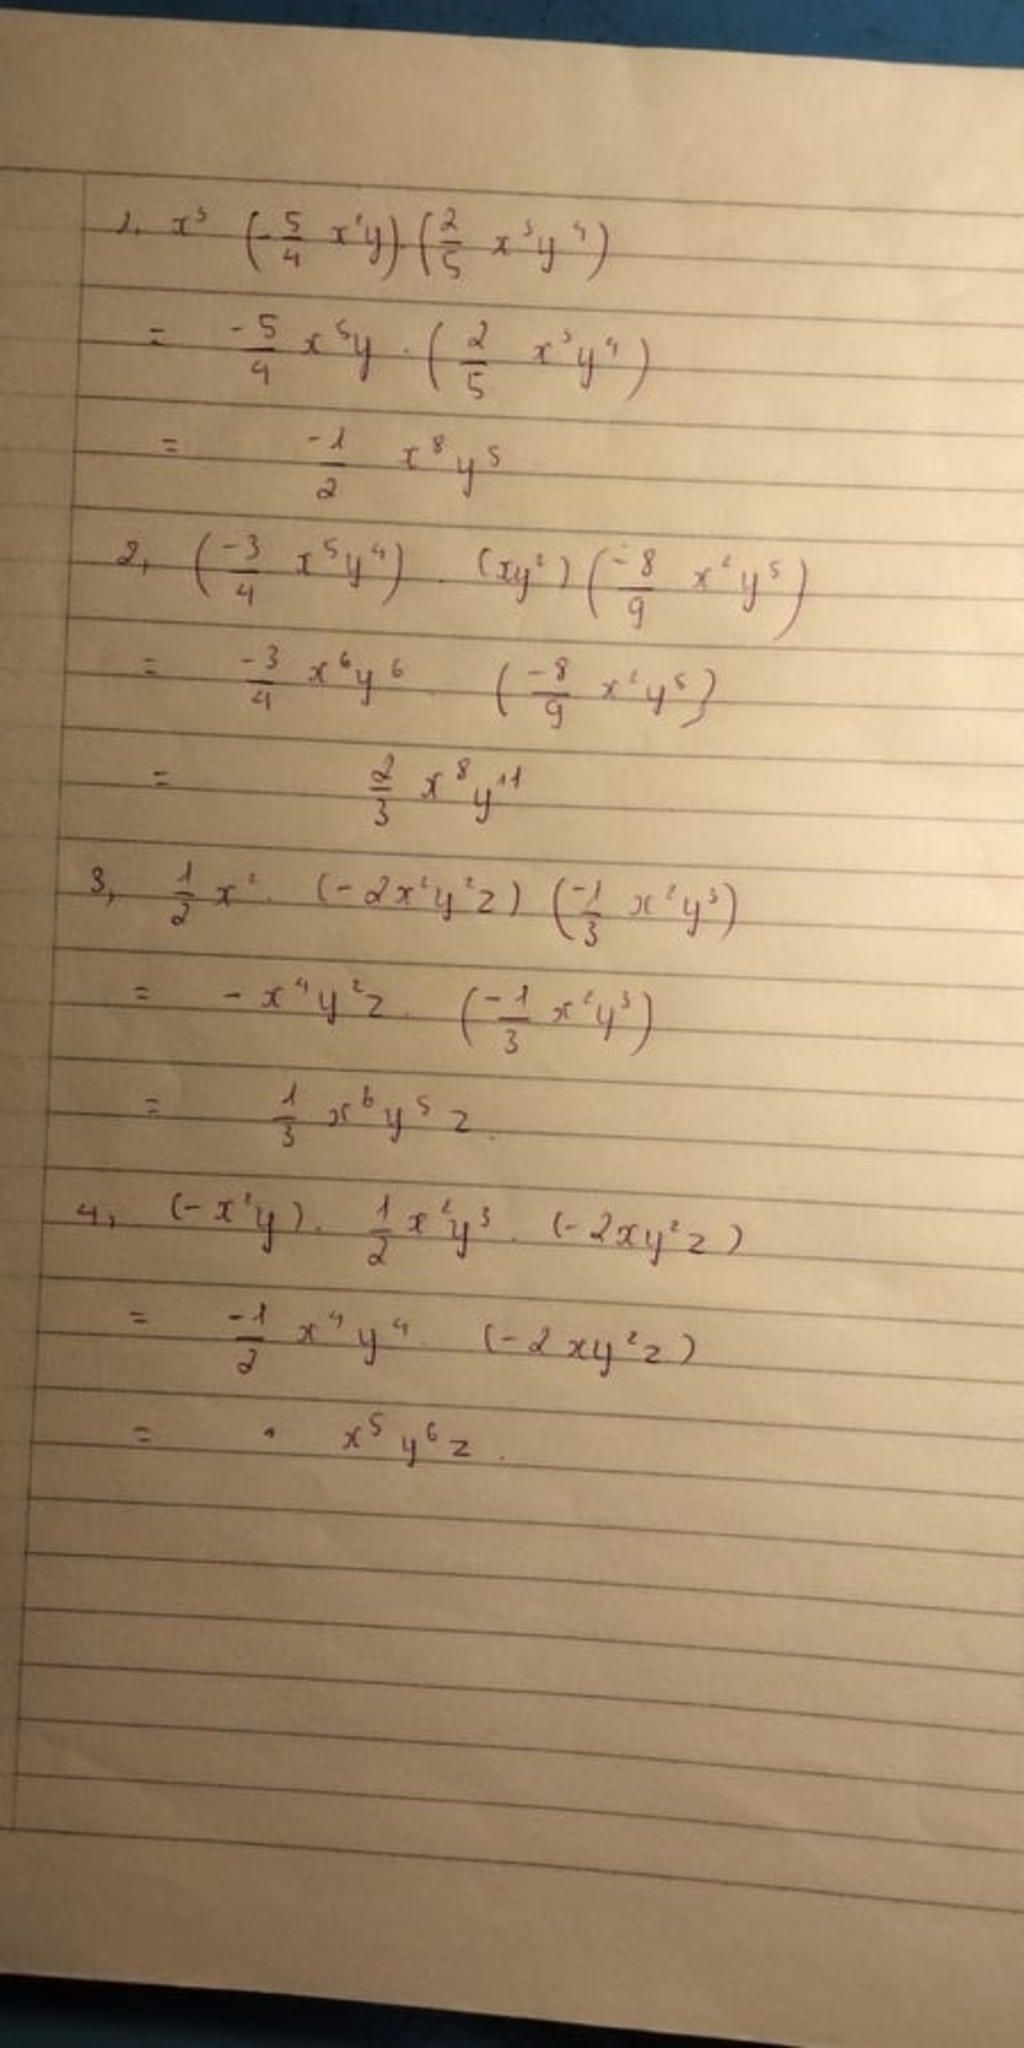 1, x³ (-5/4 x²y) · (2/5 x³y⁴)
= -5/4 x⁵y · (2/5 x³y⁴)
= -1/2 x⁸y⁵
2, (-3/4 x⁵y⁴) · (xy²) (-8/9 x²y⁵)
= -3/4 x⁶y⁶ · (-8/9 x²y⁵)
= 2/3 x⁸y¹¹
3, 1/2 x² · (-2x²y²z) (-1/3 x²y³)
= -x⁴y²z · (-1/3 x²y³)
= 1/3 x⁶y⁵z.
4, (-x²y) · 1/2 x²y³ · (-2xy²z)
= -1/2 x⁴y⁴ · (-2xy²z)
= x⁵y⁶z.